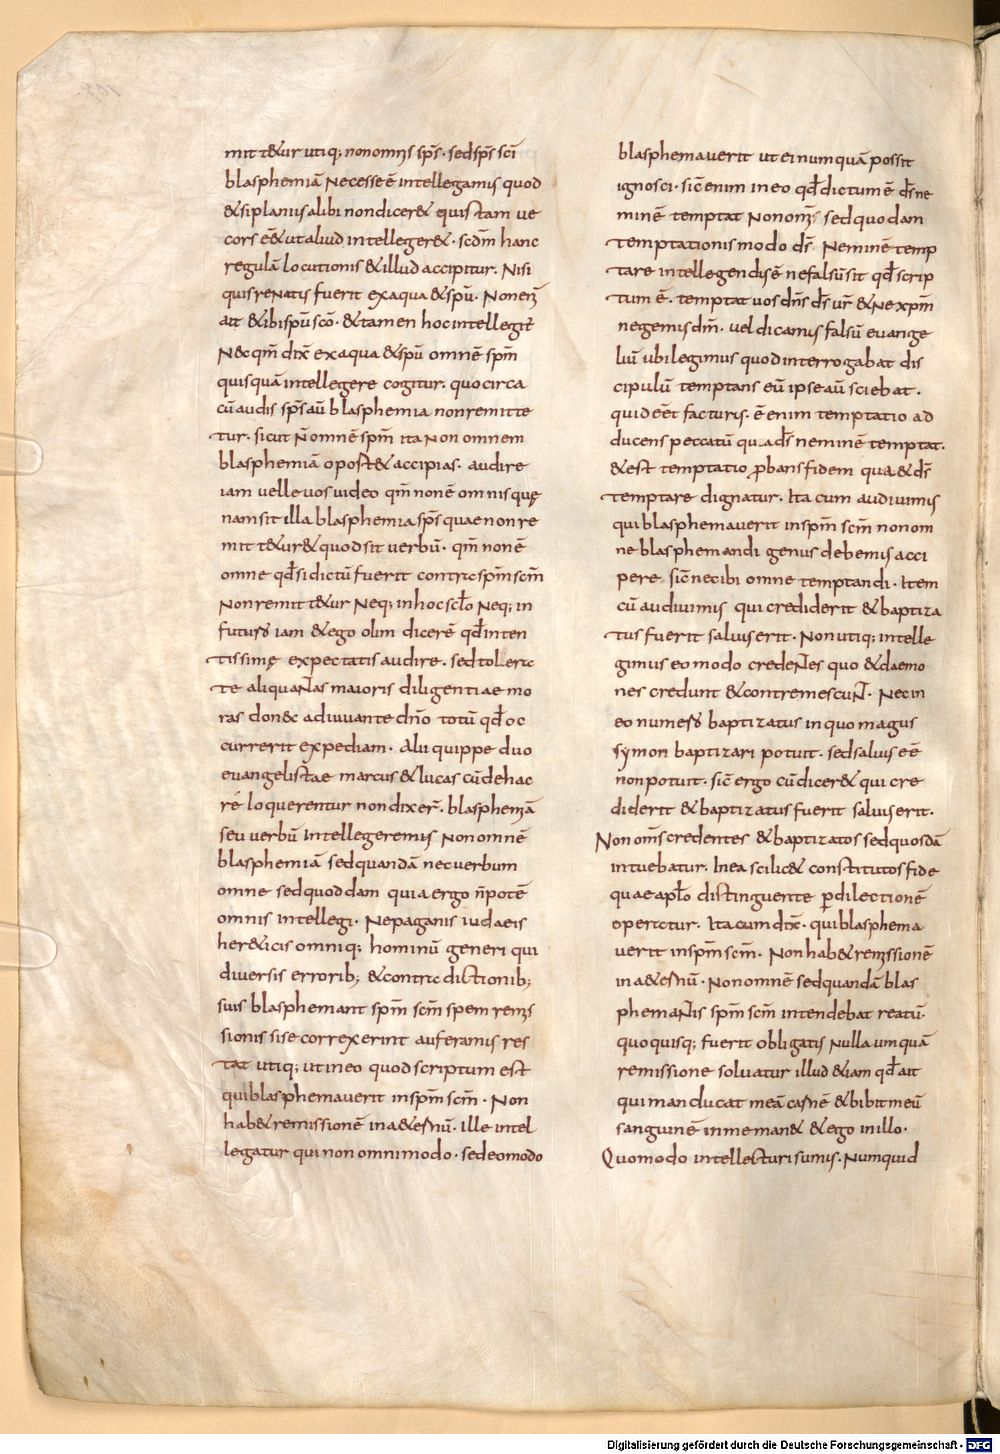 mitt&ur utiq; non omnis sp̄s· sed sp̄s sc̄i
blasphemiā Necesse ē intellegamus quod
& si planius alibi non dicer& quis tam ue
cors eēt & ut aliud intelleger&· scd̄m hanc
regulā locutionis & illud accipitur. Nisi
quis renatis fuerit ex aqua & sp̄u· Non em̄
ait & ibi sp̄u sc̄o· & tamen hoc intellegit̄
Nec qm̄ dix̄ ex aqua & sp̄u omnē sp̄m
quisquā intellegere cogitur. quo circa
cū audis sp̄s aū blasphemia non remitte
tur· sicut n̄ omnē sp̄m ita Non omnem
blasphemiā oport& accipias· audire
iam uelle uos uideo qm̄ non ē omnis quę
nam sit illa blasphemia sp̄s quae non re
mitt&ur & quod sit uerbū· qm̄ non ē
omne qd̄ si dictū fuerit contra sp̄m sc̄m
Non remitt&ur Neq; in hoc scl̄o Neq; in
futuro iam & ego olim dicerē qd̄ inten
tissimę expectatis audire· sed tolera
te aliquaNtas maioris diligentiae mo
ras donec adiuuante dn̄o totū qd̄ oc
currerit expediam· Alii quippe duo
euangelistae marcus & lucas cū de hac
ré loquerentur non dixer̄· blasphemiā
seu uerbū intellegeremus Non omnē
blasphemiā sed quandā nec uerbum
omne sed quoddam quia ergo n̄ potē
omnis intellegi· Ne paganis iudaeis
her&icis omniq; hominū generi qui
diuersis errorib; & contradictionib;
suis blasphemant sp̄m sc̄m spem remis
sionis si se correxerint auferamus res
tat utiq; ut in eo quod scriptum est
qui blasphemauerit in sp̄m sc̄m· Non
hab& remissionē in a&ernū· ille intel
legatur qui non omni modo· sed eo modo
blasphemauerit ut ei numquā possit
ignosci· sic̄ enim in eo qd̄ dictum ē d̄s ne
minē temptat Non om̄i sed quodam
temptationis modo d̄s Neminē temp
tare intellegendus ē ne falsū sit qd̄ scrip
tum ē· temptat uos dn̄s d̄s ur̄ & Ne xp̄m
negemus dm̄· uel dicamus falsū euange
liū ubi legimus quod interrogabat dis
cipulū temptans eū ipse aū sciebat·
quid eēt facturus· ē enim temptatio ad
ducens peccatū qua d̄s neminē temptat·
& est temptatio probans fidem qua & d̄s
temptare dignatur· Ita cum audiuimus
qui blasphemauerit in sp̄m sc̄m non om
ne blasphemandi genus debemus acci
pere sic̄ nec ibi omne temptandi· Item
cū audiuimus qui crediderit & baptiza
tus fuerit saluus erit· Non utiq; intelle
gimus eo modo credeNtes quo & daemo
nes credunt & contremescuNt· Nec in
eo numero baptizatus in quo magus
symon baptizari potuit· sed saluus eē
non potuit· sic̄ ergo cū dicer& qui cre
diderit & baptizatus fuerit saluus erit·
Non om̄s credentes & baptizatos sed quosdā
intuebatur· In ea scilic& constitutos fide
quae apl̄o distinguente p̱ dilectionē
operatur· Ita cum dix̄· qui blasphema
uerit in sp̄m sc̄m· Non hab& remissionē
in a&ernū· Non omnē sed quandā blas
phemaNtis sp̄m sc̄m intendebat reatū·
quo quisq; fuerit obligatus Nulla umquā
remissione soluatur illud &iam qd̄ ait
qui manducat meā carnē & bibit meū
sanguinē in me man& & ego in illo·
Quomodo intellecturi sumus· Numquid
Digitalisierung gefördert durch die Deutsche Forschungsgemeinschaft - DFG